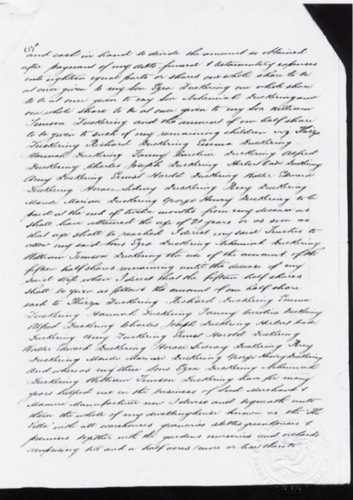 and cash in hand to divide the amount so obtained
after payment of my debts funeral & testamentary expenses
into eighteen equal parts or shares one whole share to be
at once given to my Son Ezra Duckering one whole share
to be at once given to my Son Nehemiah Duckering and
one whole share to be at once given to my Son William
Duckering and the amount of one half share
to be given to each of my remaining children viz Thirza
Duckering Richard Duckering Emma Duckering
Hannah Duckering Fanny Caroline Duckering Alfred
Duckering Charles Joseph Duckering Herbert Duckering
Amy Duckering Ernest Harold Duckering Walter Edward
Duckering Horace Sidney Duckering Duckering
Maude Marian Duckering George Henry Duckering to be
paid at the end of twelve months from my decease or
shall have attained the age of 21 years or as soon as
that age shall be reached I direct my said Trustees to
allow my said Sons Ezra Duckering Nehemiah Duckering
William Duckering the use of the amount of the
fifteen half shares remaining until the decease of my
Wife when I direct that the fifteen half shares
shall be given as follows the amount of one half share
each to Thirza Duckering Richard Duckering Emma
Duckering Hannah Duckering Fanny Caroline Duckering
Alfred Duckering Charles Joseph Duckering Herbert
Duckering Amy Duckering Ernest Harold Duckering
Walter Edward Duckering Horace Sidney Duckering
Duckering Maude Marian Duckering George Henry Duckering
And whereas my three Sons Ezra Duckering Nehemiah
Duckering William Duckering have for many
years helped me in the business of Seed Merchant &
Manure Manufacturer now I devise and bequeath unto
them the whole of my dwellinghouse known as the
Villa with all warehouses granaries stables greenhouses &
premises together with the gardens nurseries and orchards
comprising and a half acres (more or less) there